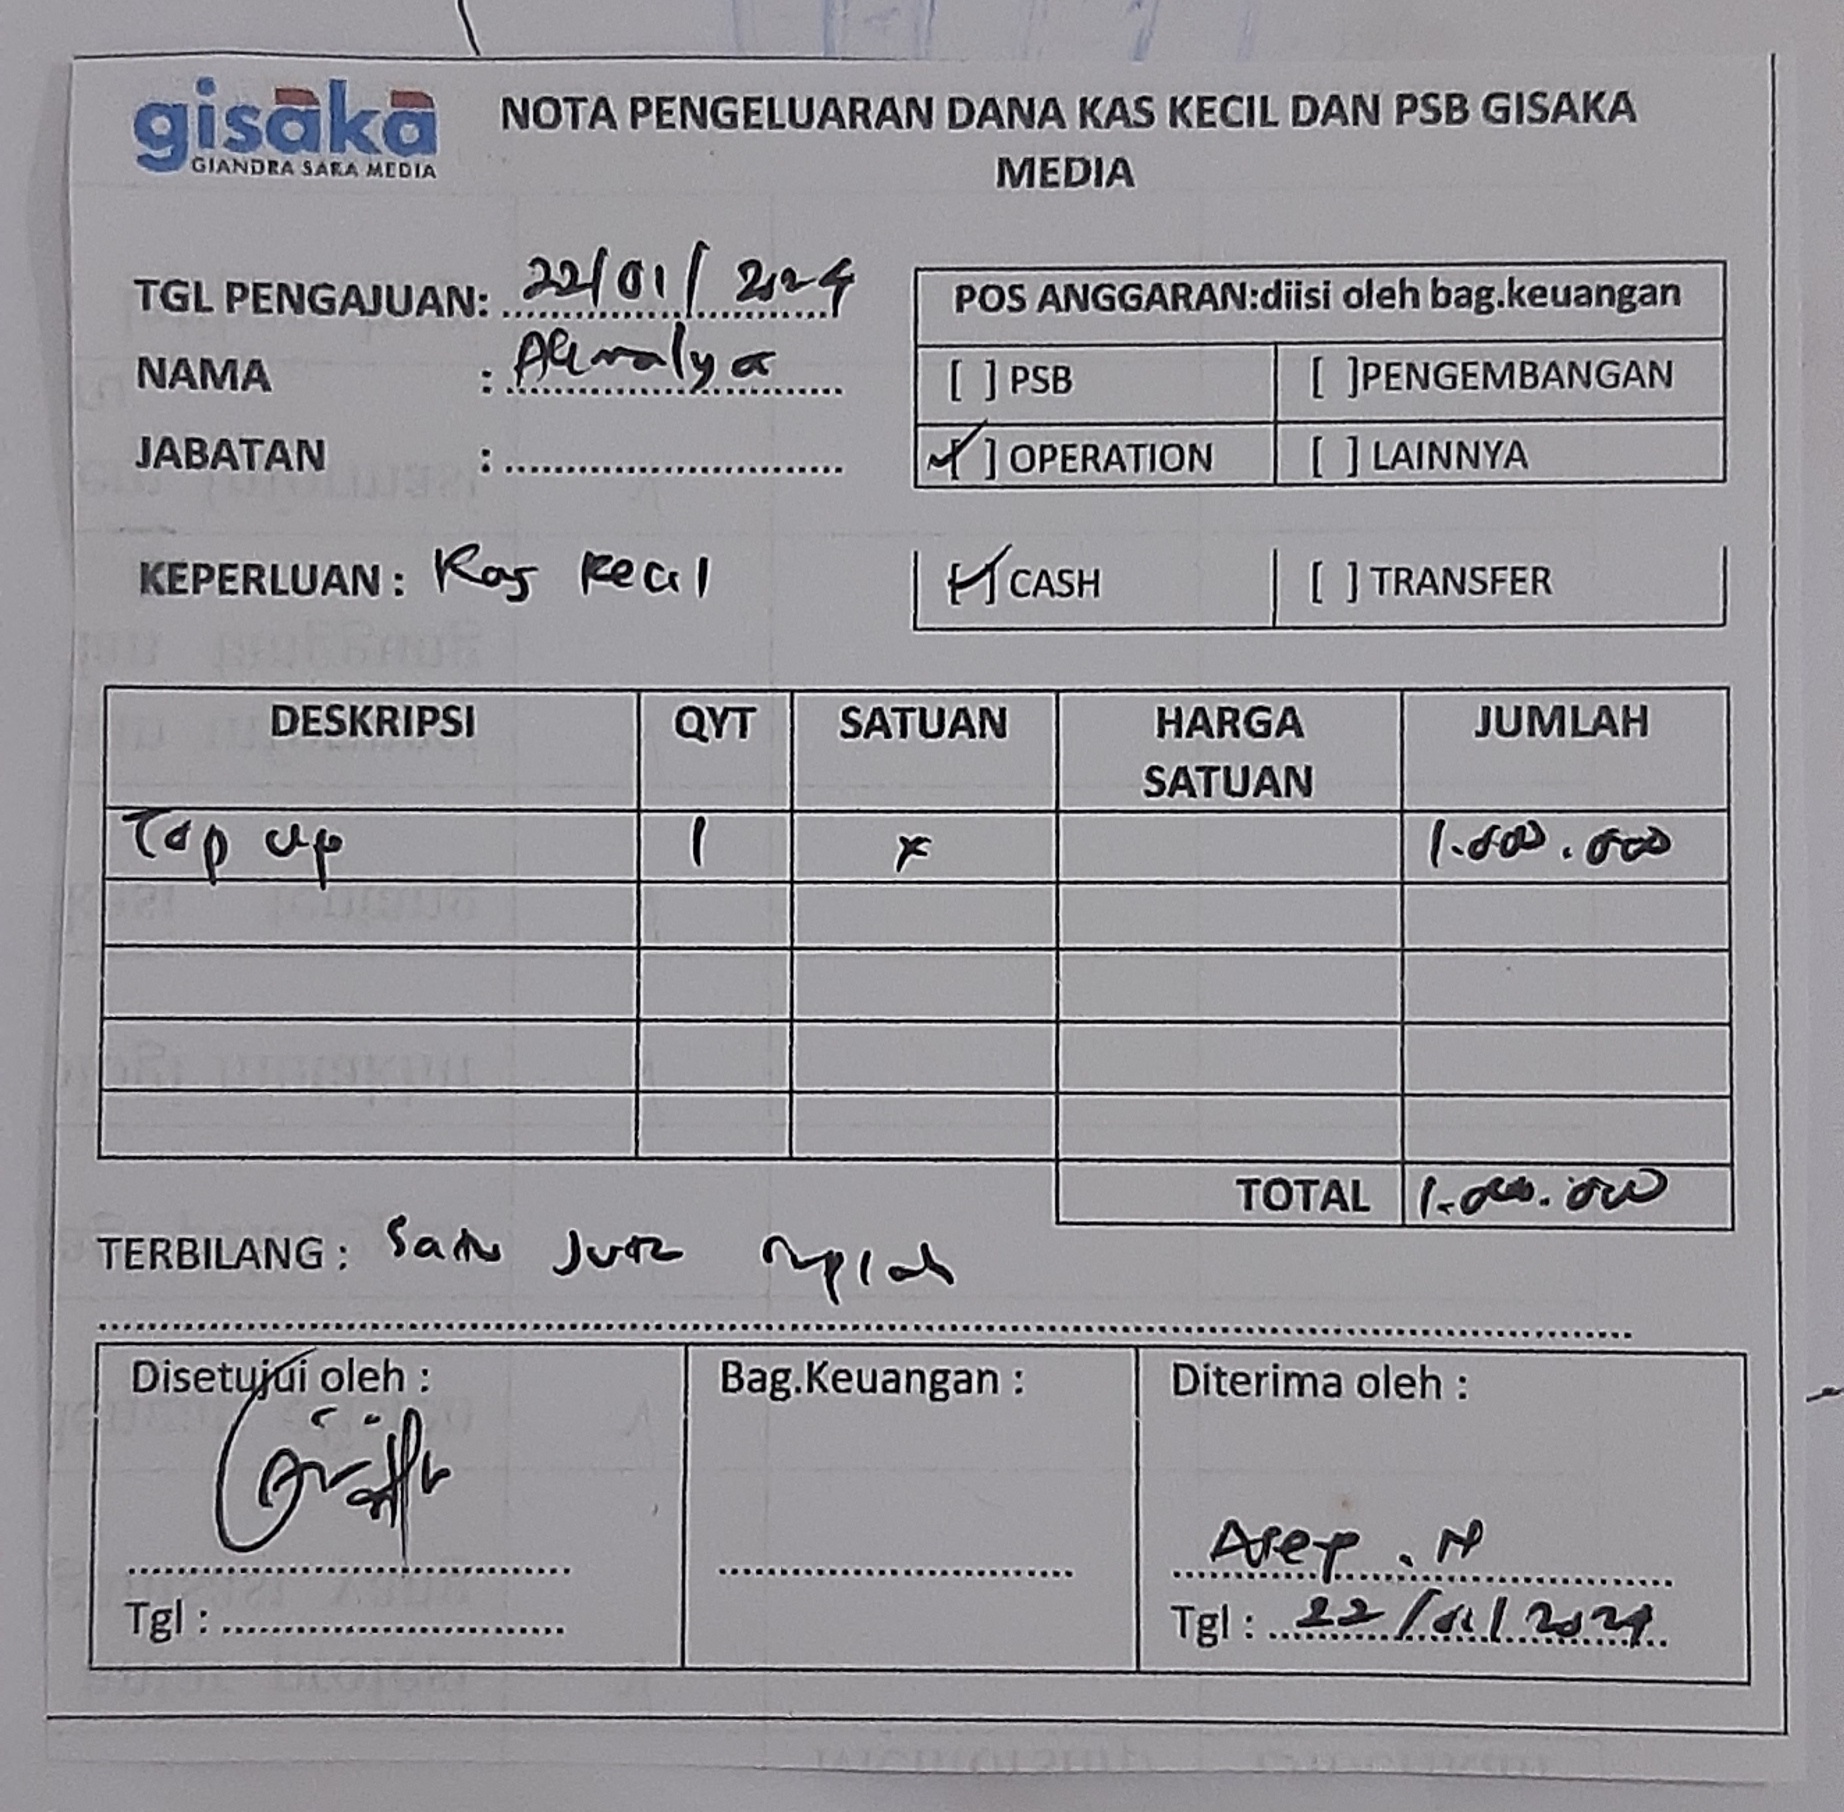 gisaka
GIANDRA SAKA MEDIA
NOTA PENGELUARAN DANA KAS KECIL DAN PSB GISAKA
MEDIA
TGL PENGAJUAN: 22/01/2024
NAMA :
JABATAN :
POS ANGGARAN:diisi oleh bag.keuangan
[ ] PSB [ ]PENGEMBANGAN
[✓] OPERATION [ ] LAINNYA
KEPERLUAN : Kas Kecil
[✓] CASH [ ] TRANSFER
DESKRIPSI QYT SATUAN HARGA SATUAN JUMLAH
Top up 1 x 1.000.000
TOTAL 1.000.000
TERBILANG : Satu Juta rupiah
Disetujui oleh : Bag.Keuangan : Diterima oleh :
Asep . N
Tgl : Tgl : 22/01/2024